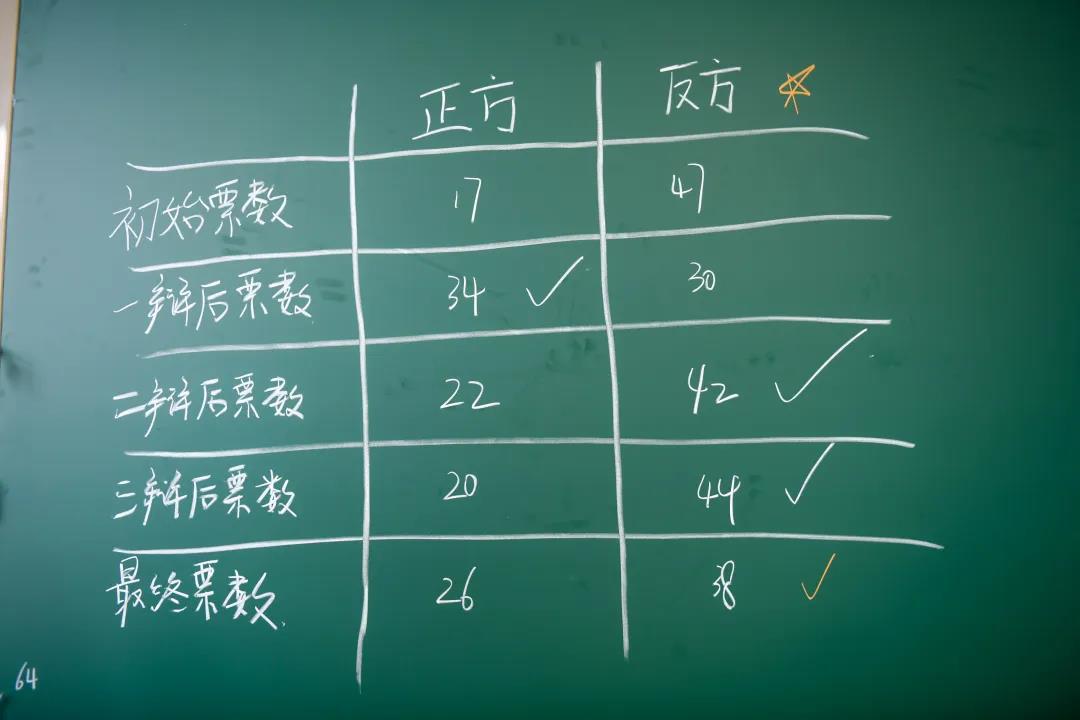 正方 反方
初始票数 17 47
一辩后票数 34 30
二辩后票数 22 42
三辩后票数 20 44
最终票数 26 38
64